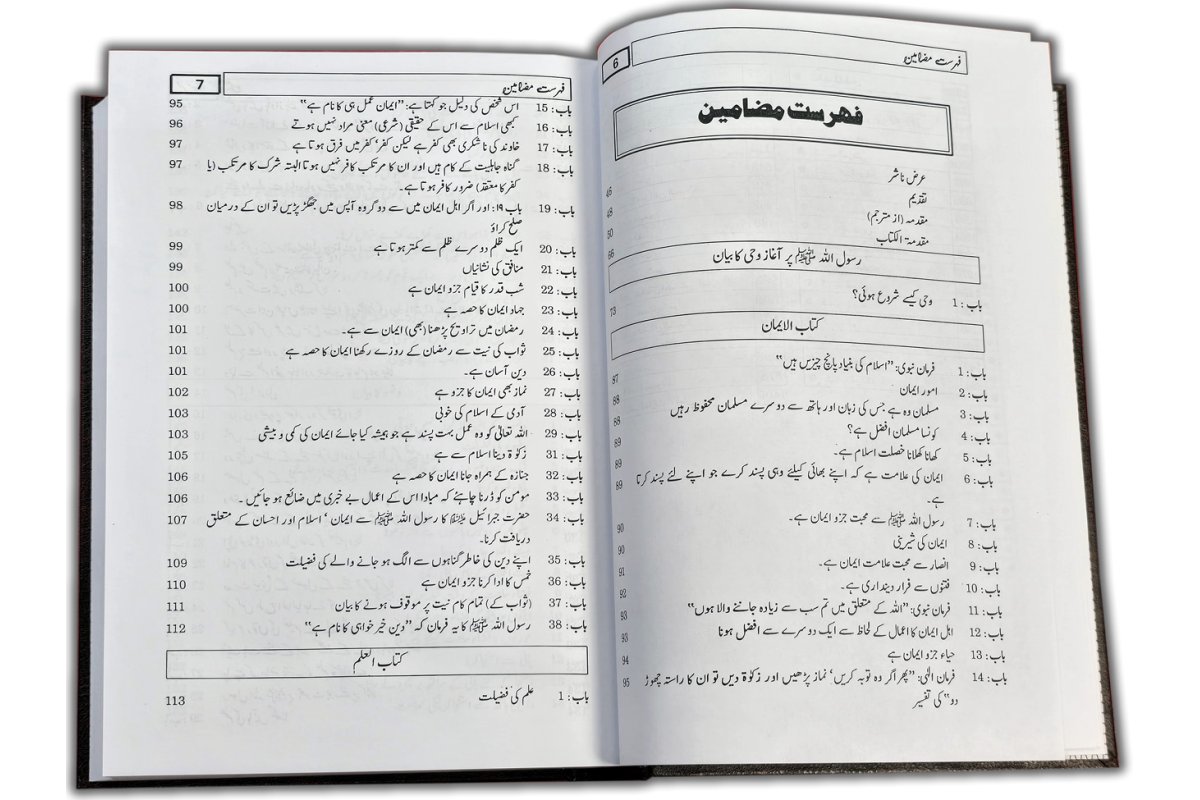 فہرست مضامین 6
فہرست مضامین
عرض ناشر 46
تقدیم 48
مقدمہ (از مترجم) 50
مقدمۃ الکتاب 66
رسول اللہ ﷺ پر آغاز وحی کا بیان
باب: 1 وحی کیسے شروع ہوئی؟ 73
کتاب الایمان
باب: 1 فرمان نبوی: "اسلام کی بنیاد پانچ چیزیں ہیں" 87
باب: 2 امور ایمان 88
باب: 3 مسلمان وہ ہے جس کی زبان اور ہاتھ سے دوسرے مسلمان محفوظ رہیں 88
باب: 4 کونسا مسلمان افضل ہے؟ 89
باب: 5 کھانا کھلانا خصلت اسلام ہے۔ 89
باب: 6 ایمان کی علامت ہے کہ اپنے بھائی کیلئے وہی پسند کرے جو اپنے لئے پسند کرتا 89
ہے۔
باب: 7 رسول اللہ ﷺ سے محبت جزو ایمان ہے۔ 90
باب: 8 ایمان کی شیرینی 90
باب: 9 انصار سے محبت علامت ایمان ہے۔ 91
باب: 10 فتنوں سے فرار دینداری ہے۔ 92
باب: 11 فرمان نبوی: "اللہ کے متعلق میں تم سب سے زیادہ جاننے والا ہوں" 93
باب: 12 اہل ایمان کا اعمال کے لحاظ سے ایک دوسرے سے افضل ہونا 93
باب: 13 حیاء جزو ایمان ہے 94
باب: 14 فرمان الٰہی: "پھر اگر وہ توبہ کریں' نماز پڑھیں اور زکوٰۃ دیں تو ان کا راستہ چھوڑ 95
دو" کی تفسیر
فہرست مضامین 7
باب: 15 اس شخص کی دلیل جو کہتا ہے: "ایمان عمل ہی کا نام ہے" 95
باب: 16 کبھی اسلام سے اس کے حقیقی (شرعی) معنی مراد نہیں ہوتے 96
باب: 17 خاوند کی ناشکری بھی کفر ہے لیکن کفر' کفر میں فرق ہوتا ہے 97
باب: 18 گناہ جاہلیت کے کام ہیں اور ان کا مرتکب کافر نہیں ہوتا البتہ شرک کا مرتکب (یا 97
کفر کا معتقد) ضرور کافر ہوتا ہے۔
باب: 19 باب ۱۹: اور اگر اہل ایمان میں سے دو گروہ آپس میں جھگڑ پڑیں تو ان کے درمیان 98
صلح کراؤ
باب: 20 ایک ظلم دوسرے ظلم سے کمتر ہوتا ہے 99
باب: 21 منافق کی نشانیاں 99
باب: 22 شب قدر کا قیام جزو ایمان ہے 100
باب: 23 جہاد ایمان کا حصہ ہے 100
باب: 24 رمضان میں تراویح پڑھنا (بھی) ایمان سے ہے۔ 101
باب: 25 ثواب کی نیت سے رمضان کے روزے رکھنا ایمان کا حصہ ہے 101
باب: 26 دین آسان ہے۔ 101
باب: 27 نماز بھی ایمان کا جزو ہے 102
باب: 28 آدمی کے اسلام کی خوبی 103
باب: 29 اللہ تعالیٰ کو وہ عمل بہت پسند ہے جو ہمیشہ کیا جائے ایمان کی کمی و بیشی 103
باب: 31 زکوٰۃ دینا اسلام سے ہے 105
باب: 32 جنازہ کے ہمراہ جانا ایمان کا حصہ ہے 106
باب: 33 مومن کو ڈرنا چاہئے کہ مبادا اس کے اعمال بے خبری میں ضائع ہو جائیں۔ 106
باب: 34 حضرت جبرائیل ﷤ کا رسول اللہ ﷺ سے ایمان' اسلام اور احسان کے متعلق 107
دریافت کرنا۔
باب: 35 اپنے دین کی خاطر گناہوں سے الگ ہو جانے والے کی فضیلت 109
باب: 36 خمس کا ادا کرنا جزو ایمان ہے 110
باب: 37 (ثواب کے) تمام کام نیت پر موقوف ہونے کا بیان 111
باب: 38 رسول اللہ ﷺ کا یہ فرمان کہ "دین خیر خواہی کا نام ہے" 112
کتاب العلم
باب: 1 علم کی فضیلت 113